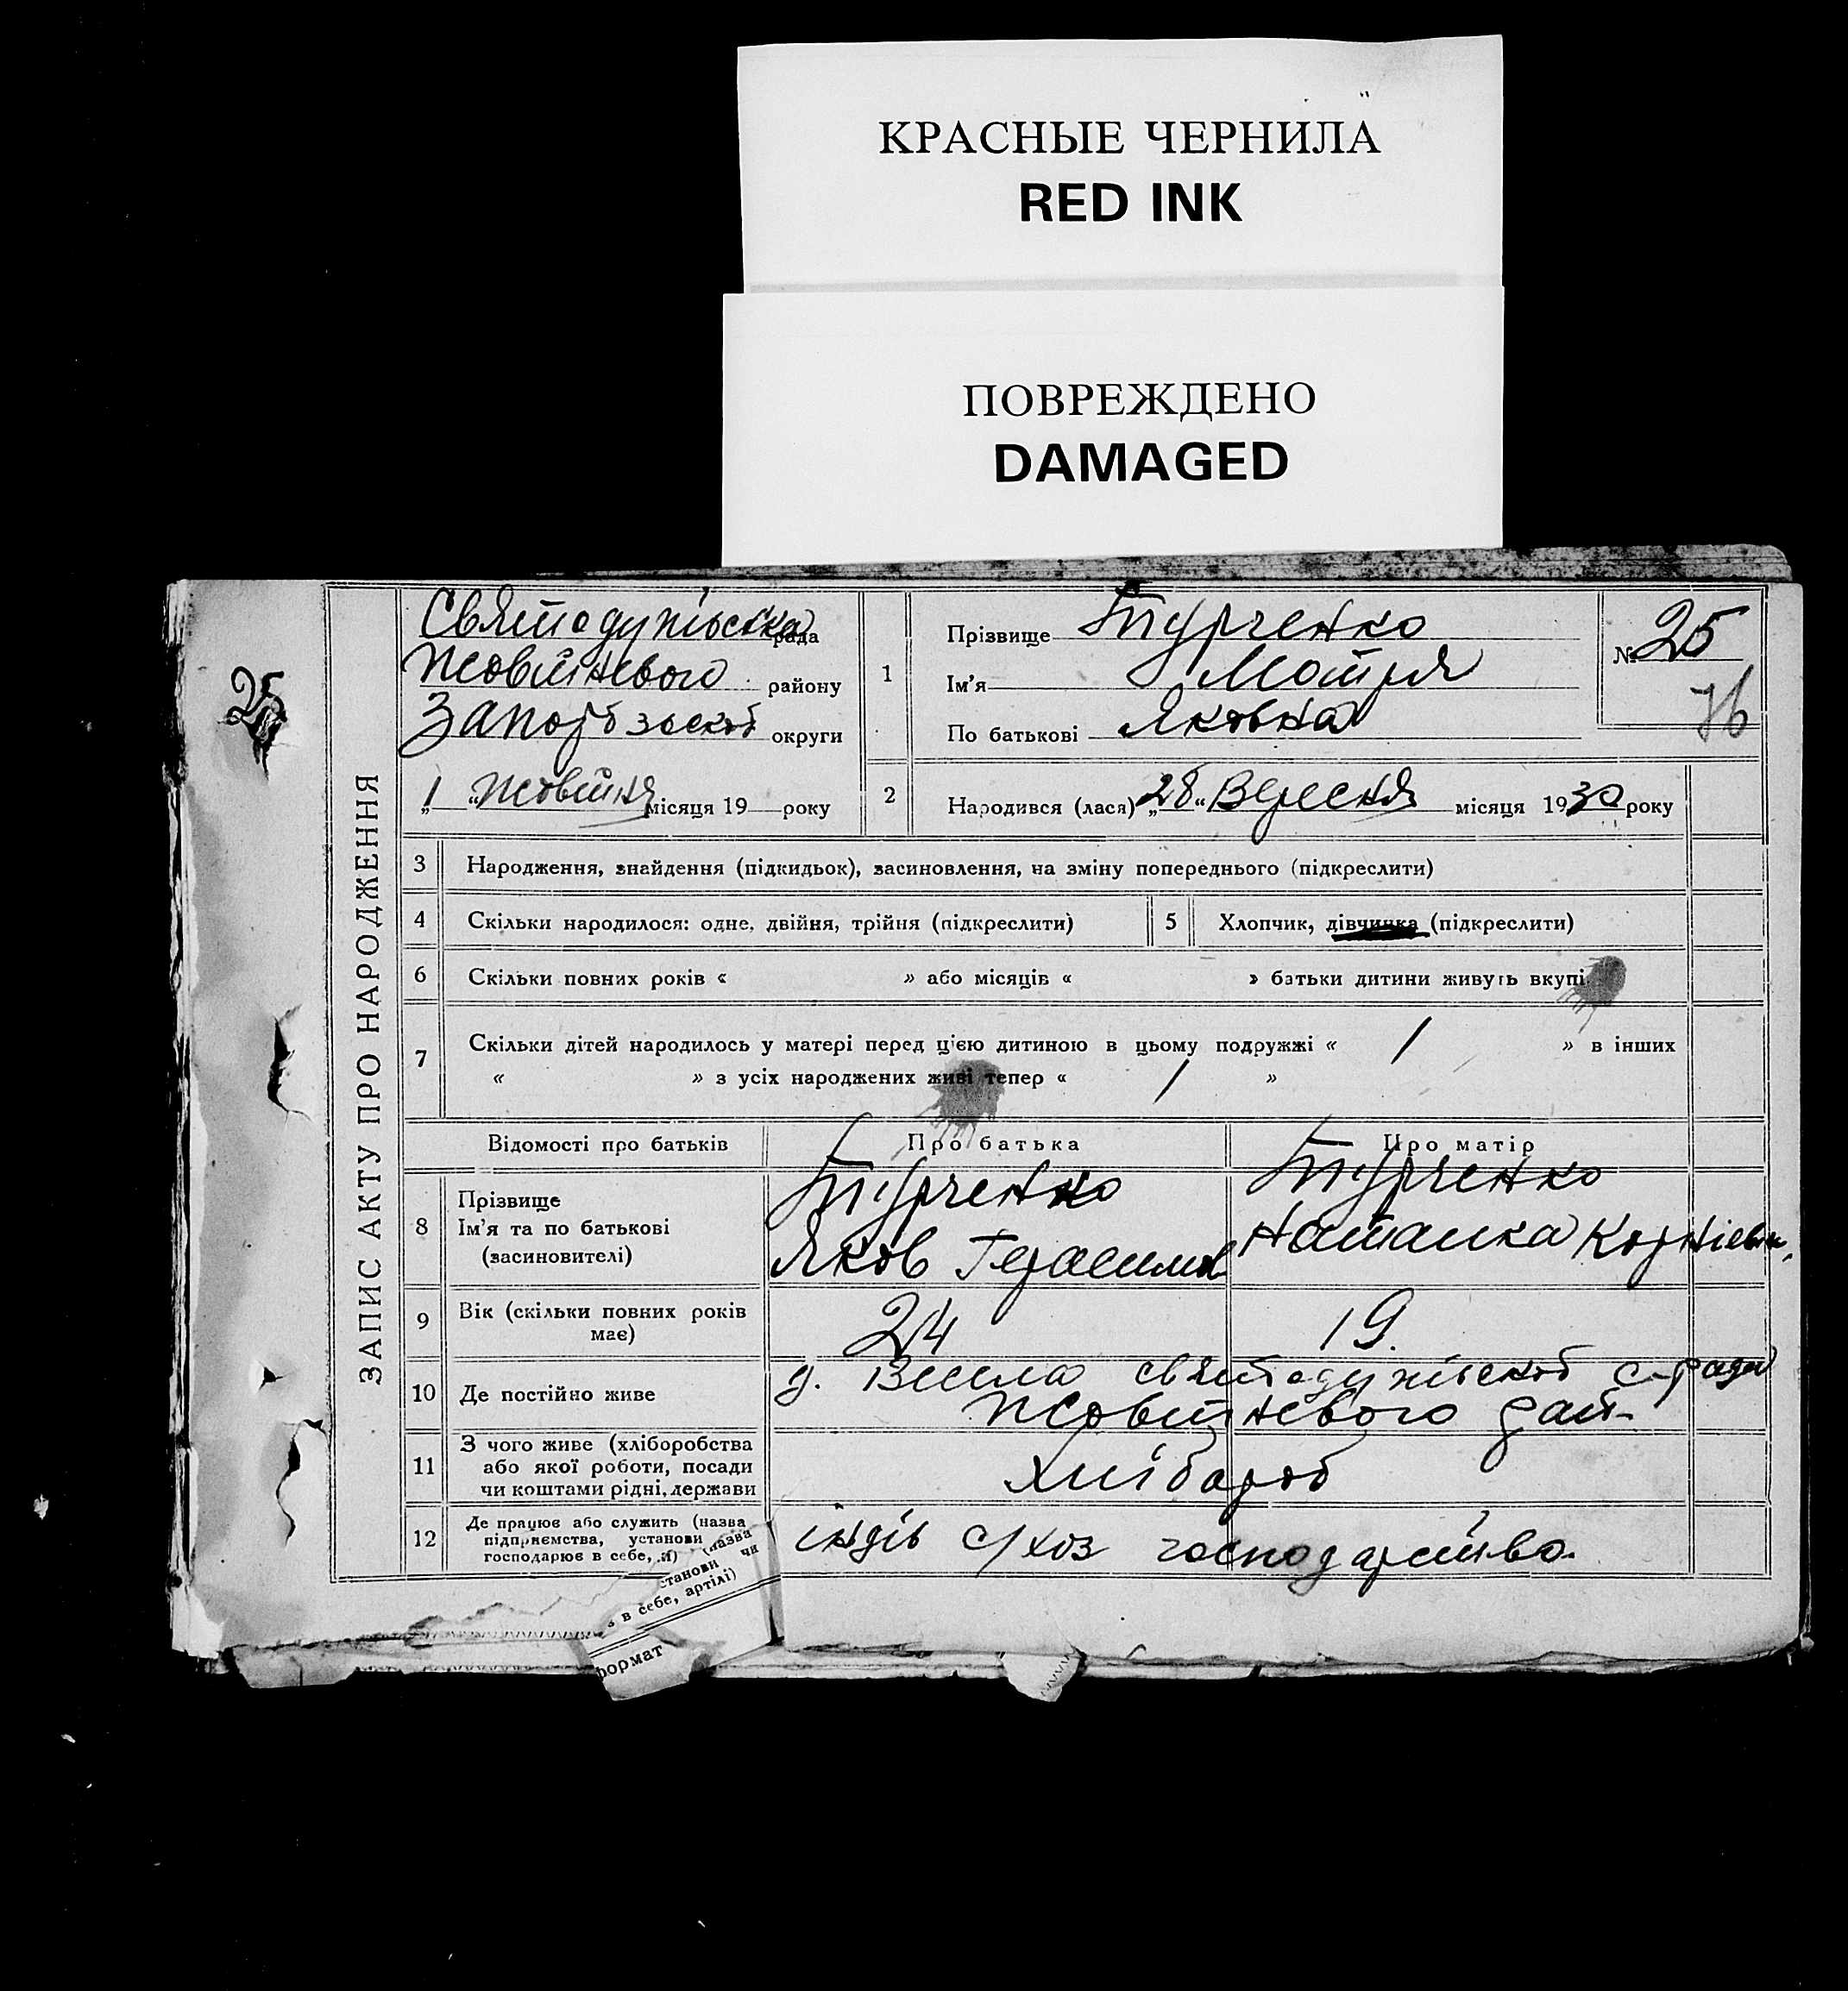 КРАСНЫЕ ЧЕРНИЛА
RED INK
ПОВРЕЖДЕНО
DAMAGED
25
ЗАПИС АКТУ ПРО НАРОДЖЕННЯ
Святодухівська рада
Жовтневого району
Запорізької округи
„1“ Жовтня місяця 19 року
1
Прізвище Турченко
Ім'я Мотря
По батькові Яковна
№ 25
76
2 Народився (лася) „28“ Вересня місяця 1930 року
3 Народження, знайдення (підкидьок), засиновлення, на зміну попереднього (підкреслити)
4 Скільки народилося: одне, двійня, трійня (підкреслити) 5 Хлопчик, дівчинка (підкреслити)
6 Скільки повних років « » або місяців « » батьки дитини живуть вкупі
7 Скільки дітей народилось у матері перед цією дитиною в цьому подружжі « 1 » в інших
« » з усіх народжених живі тепер « 1 »
Відомості про батьків Про батька Про матір
8 Прізвище
Ім'я та по батькові
(засиновителі)
Турченко
Яков Герасимов
Турченко
Наталка Корніевн.
9 Вік (скільки повних років
має)
24 19.
10 Де постійно живе
д. Весела святодухівской с-ради
Жовтневого рай-
11 З чого живе (хліборобства
або якої роботи, посади
чи коштами рідні, держави
Хлібороб
12 Де працює або служить (назва
підприємства, установи
господарює в себе,
індів с/хоз господарство.
(назва
станови чи
в себе, артілі)
формат